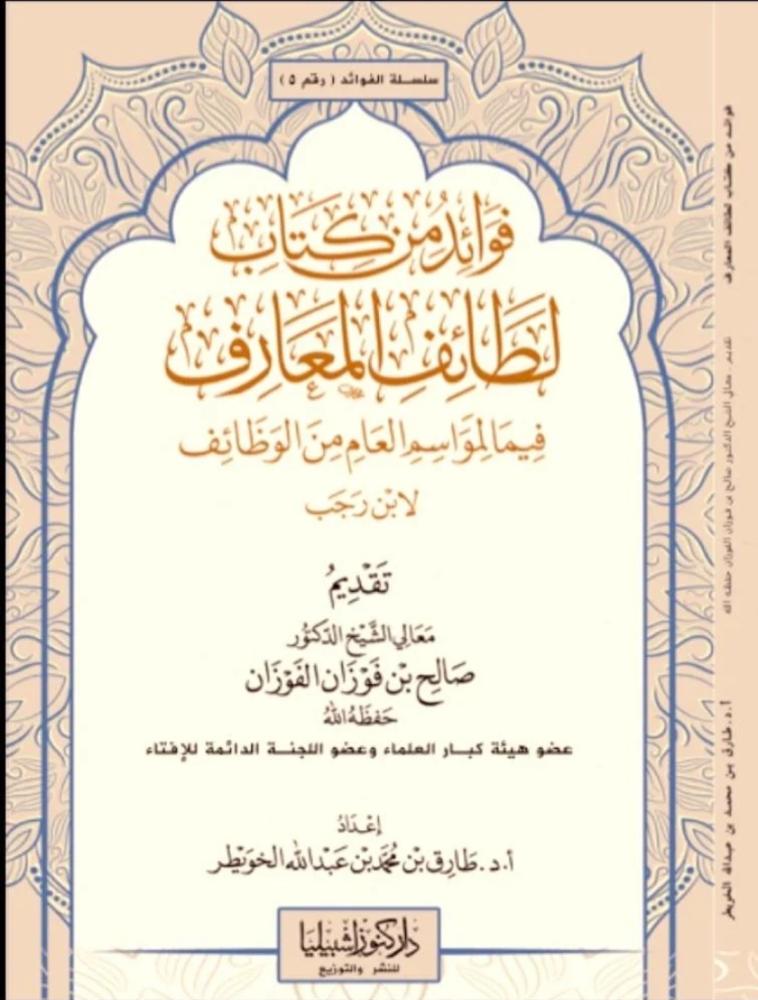 سلسلة الفوائد ( رقم ٥ )
فَوَائِدُ مِنْ كِتَابِ
لَطَائِفِ المَعَارِفِ
فِيمَا لِمَوَاسِمِ العَامِ مِنَ الوَظَائِفِ
لابْنِ رَجَب
تَقْدِيمُ
مَعَالِي الشَّيْخِ الدّكتُور
صَالِح بْن فَوْزَان الفَوْزَان
حَفِظَهُ اللهُ
عضو هيئة كبار العلماء وعضو اللجنة الدائمة للإفتاء
إعْدَادُ
أ.د. طَارِق بْن مُحَمَّد بْن عَبْدالله الخويْطِر
دار كنوز إشبيليا
للنشر والتوزيع
فوائد من كتاب لطائف المعارف
تقديم . معالي الشيخ الدكتور صالح بن فوزان الفوزان حفظه الله
أ.د. طارق بن محمد بن عبدالله الخويطر